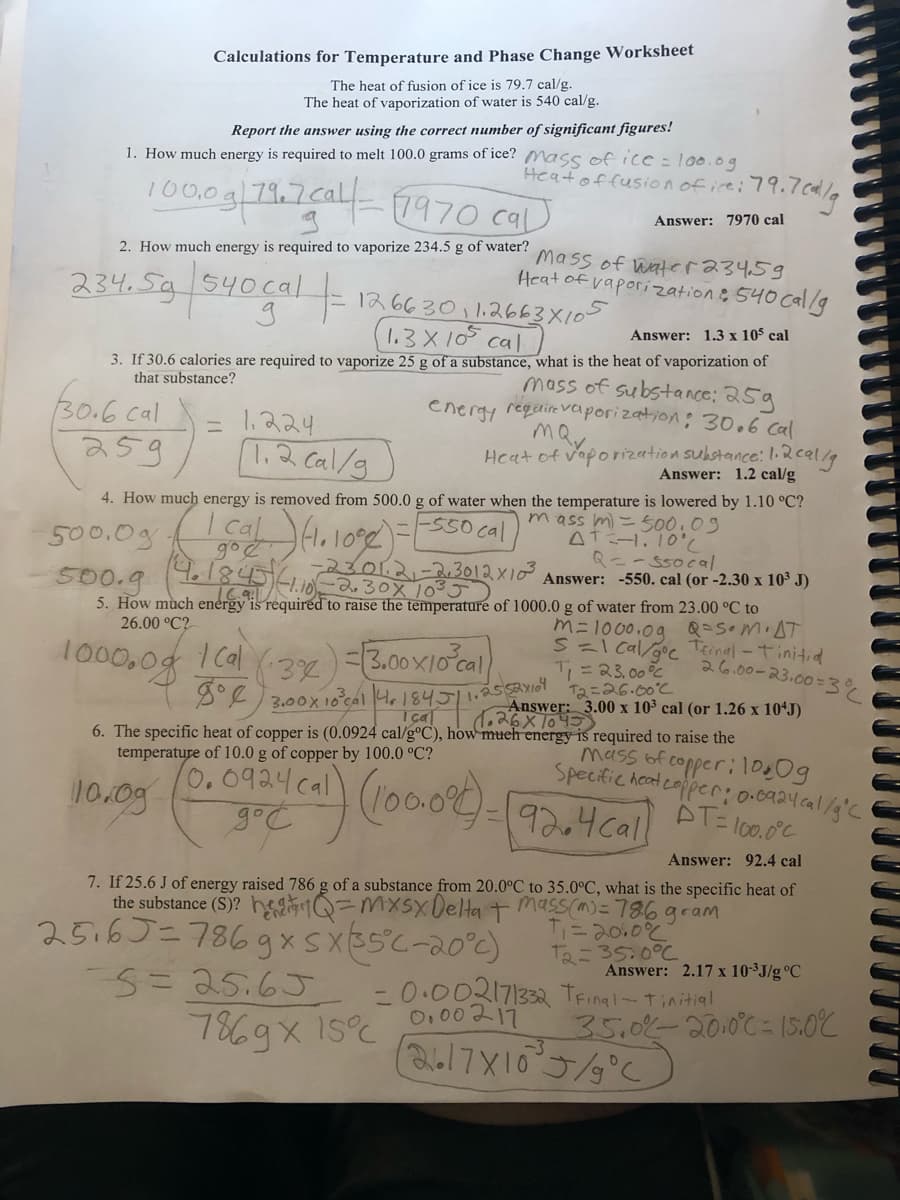 Calculations for Temperature and Phase Change Worksheet
The heat of fusion of ice is 79.7 cal/g.
The heat of vaporization of water is 540 cal/g.
Report the answer using the correct number of significant figures!
1. How much energy is required to melt 100.0 grams of ice? mass of ice = 100.0g
Heat of fusion of ice: 79.7 cal/g
100.0g | 79.7 cal / g = 7970 cal
Answer: 7970 cal
2. How much energy is required to vaporize 234.5 g of water?
mass of water 234.5g
Heat of vaporization: 540 cal/g
234.5g | 540 cal / g = 126630, 1.2663 X 10⁵
1.3 X 10⁵ cal
Answer: 1.3 x 10⁵ cal
3. If 30.6 calories are required to vaporize 25 g of a substance, what is the heat of vaporization of
that substance?
mass of substance: 25g
energy require vaporization: 30.6 cal
30.6 cal / 25g = 1.224
1.2 cal/g
Heat of vaporization substance: 1.2 cal/g
Answer: 1.2 cal/g
4. How much energy is removed from 500.0 g of water when the temperature is lowered by 1.10 ºC?
mass m) = 500.0g
500.0g (1 cal / g°C) (-1.10°C) = -550 cal
ΔT = -1.10°C
Q = -550cal
500.g (4.184J / 1 cal) (-1.10) -2301.2, -2.3012 X 10³
-2.30 X 10³ J
Answer: -550. cal (or -2.30 x 10³ J)
5. How much energy is required to raise the temperature of 1000.0 g of water from 23.00 ºC to
26.00 ºC?
m = 1000.0g Q = S • M • ΔT
S = 1 cal/g°C Tfinal - Tinitial
T₁ = 23.00°C 26.00-23.00=3°C
T₂ = 26.00°C
1000.0g (1 cal / g°C) (3°C) = 3.00x10³ cal
3.00 x 10³ cal | 4.184J / 1 cal | 1.2552x10⁴
1.26 X 10⁴ J
Answer: 3.00 x 10³ cal (or 1.26 x 10⁴J)
6. The specific heat of copper is (0.0924 cal/gºC), how much energy is required to raise the
temperature of 10.0 g of copper by 100.0 ºC?
mass of copper: 10.0g
Specific heat copper: 0.0924 cal/g°C
ΔT = 100.0°C
10.0g (0.0924 cal / g°C) (100.0°C) = 92.4 cal
Answer: 92.4 cal
7. If 25.6 J of energy raised 786 g of a substance from 20.0ºC to 35.0ºC, what is the specific heat of
the substance (S)? heat energy Q = mxsx Delta t mass(m) = 786 gram
T₁ = 20.0°C
T₂ = 35.0°C
25.6J = 786 g x S x (35°C-20°C)
Answer: 2.17 x 10⁻³J/g ºC
S = 25.6J / 786g x 15°C = 0.002171332
0.00217
TFinal - Tinitial
35.0°C - 20.0°C = 15.0°C
2.17 X 10⁻³ J/g°C